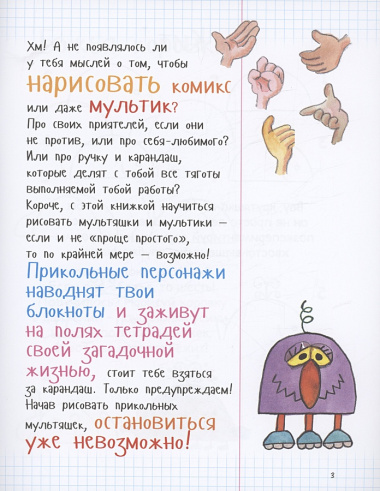 Хм! А не появлялось ли
у тебя мыслей о том, чтобы
нарисовать комикс
или даже мультик?
Про своих приятелей, если они
не против, или про себя-любимого?
Или про ручку и карандаш,
которые делят с тобой все тяготы
выполняемой тобой работы?
Короче, с этой книжкой научиться
рисовать мультяшки и мультики —
если и не «проще простого»,
то по крайней мере — возможно!
Прикольные персонажи
наводнят твои
блокноты и заживут
на полях тетрадей
своей загадочной
жизнью, стоит тебе взяться
за карандаш. Только предупреждаем!
Начав рисовать прикольных
мультяшек, остановиться
уже невозможно!
3